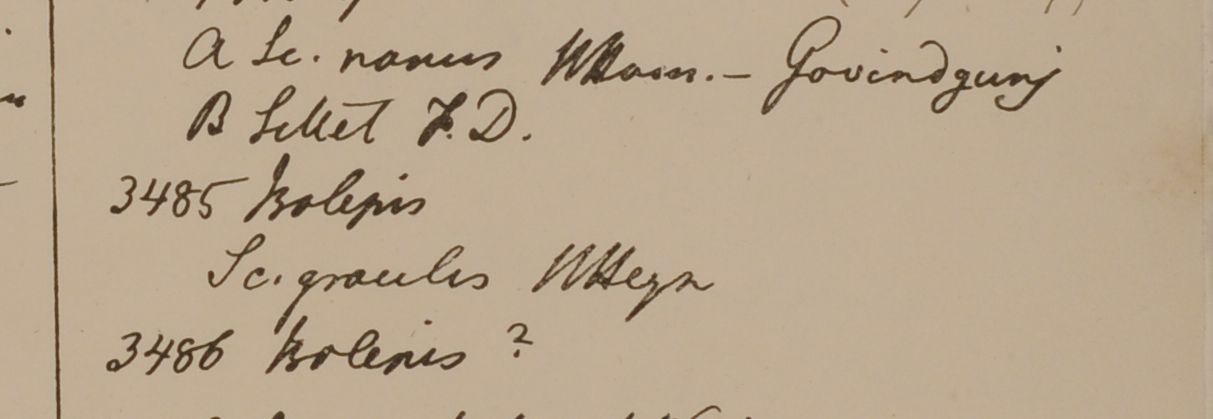 A Sc. nanus WHam. – Govindgunj
B Sillet F. D.
3485 Isolepis
Sc. gracilis WHeyn
3486 Isolepis ?